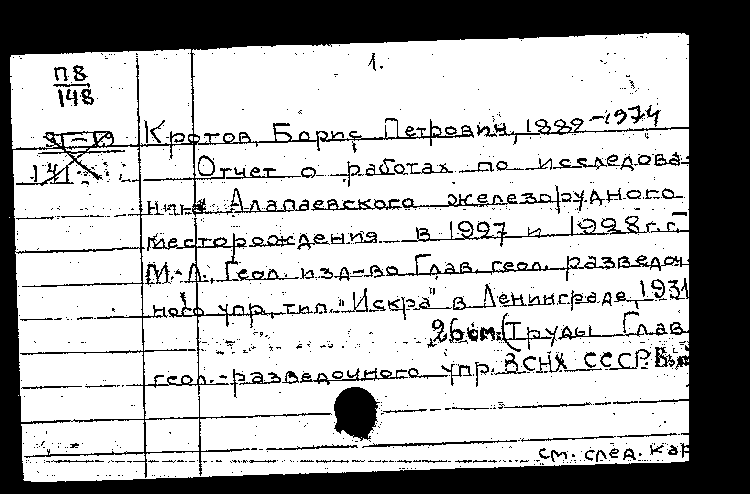 1.
П8
148
141
Кротов, Борис Петрович, 1889-1974
Отчет о работах по исследова-
нию Алапаевского железорудного
месторождения в 1927 и 1928 г.г.
М.-Л., Геол. изд-во Глав. геол. разведоч-
ного упр., тип. "Искра" в Ленинграде, 1931
26 см. (Труды Глав.
геол.-разведочного упр. ВСНХ СССР.
см. след. кар